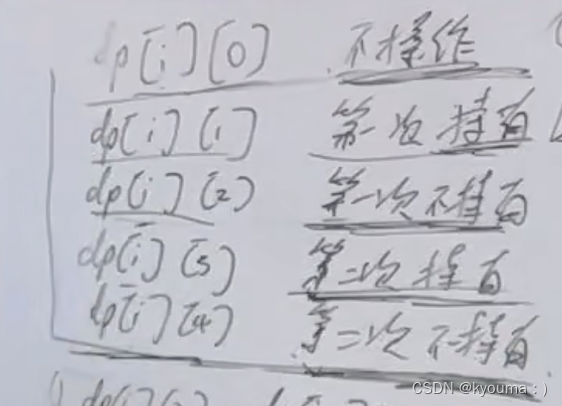 dp[i][0] 不操作
dp[i][1] 第一次持有
dp[i][2] 第一次不持有
dp[i][3] 第二次持有
dp[i][4] 第二次不持有
CSDN @kyouma:)